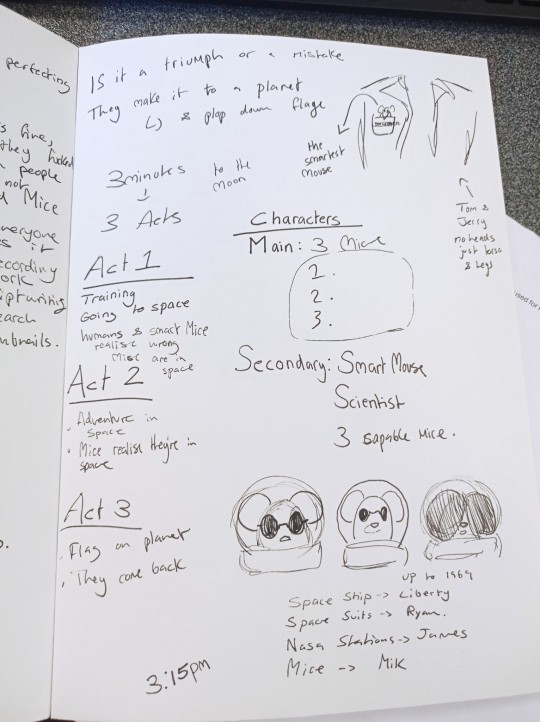 perfecting
fine,
they
people
not
Mice
everyone
it
Is it a triumph or a mistake
They make it to a planet
↳ & plop down flage
3 minutes to the moon
↓
3 Acts
the smartest mouse
Tom &
Jerry
no heads
just torso
& legs
Act 1
Training
Going to space
humans & smart Mice
realise wrong
Mice are in
space
Act 2
• Adventure in
Space
• Mice realise they're in
space
Act 3
• Flag on planet
• They come back
3:15pm
Characters
Main: 3 Mice
1.
2.
3.
Secondary: Smart Mouse
Scientist
3 capable Mice.
up to 1969
Space Ship -> Liberty
Space Suits -> Ryan.
Nasa Stations -> James
Mice -> Mik
used for